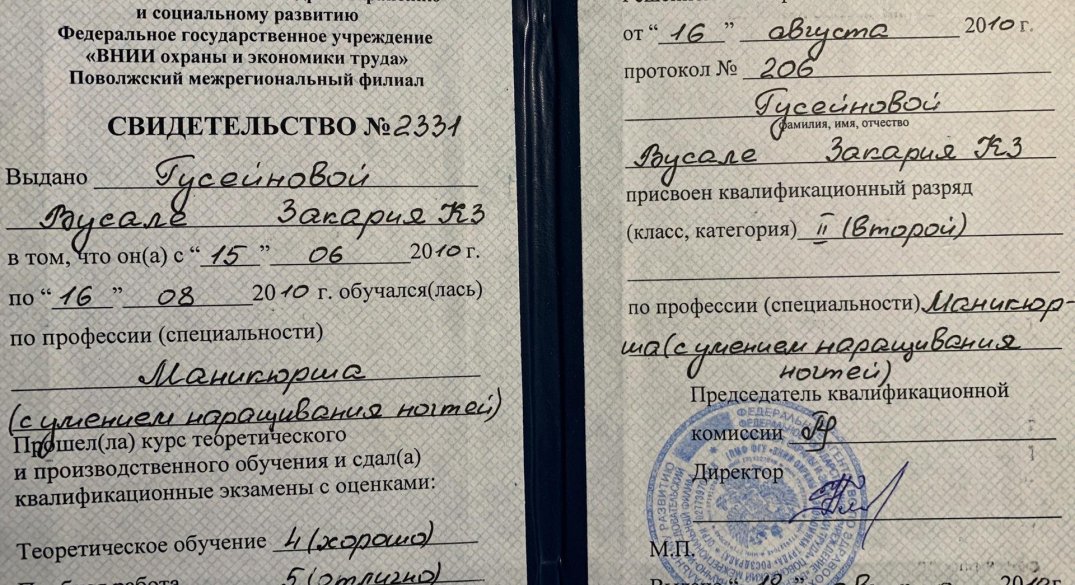 и социальному развитию
Федеральное государственное учреждение
«ВНИИ охраны и экономики труда»
Поволжский межрегиональный филиал
СВИДЕТЕЛЬСТВО №2331
Выдано Гусейновой
Вусале Закария КЗ
в том, что он(а) с “15” 06 2010 г.
по “16” 08 2010 г. обучался(лась)
по профессии (специальности)
Маникюрша
(с умением наращивания ногтей)
Прошел(ла) курс теоретического
и производственного обучения и сдал(а)
квалификационные экзамены с оценками:
Теоретическое обучение 4 (хорошо)
работа 5 (отлично)
от “16” августа 2010 г.
протокол № 206
Гусейновой
фамилия, имя, отчество
Вусале Закария КЗ
присвоен квалификационный разряд
(класс, категория) II (второй)
по профессии (специальности) Маникюр-
ша (с умением наращивания
ногтей)
Председатель квалификационной
комиссии
Директор
М.П.